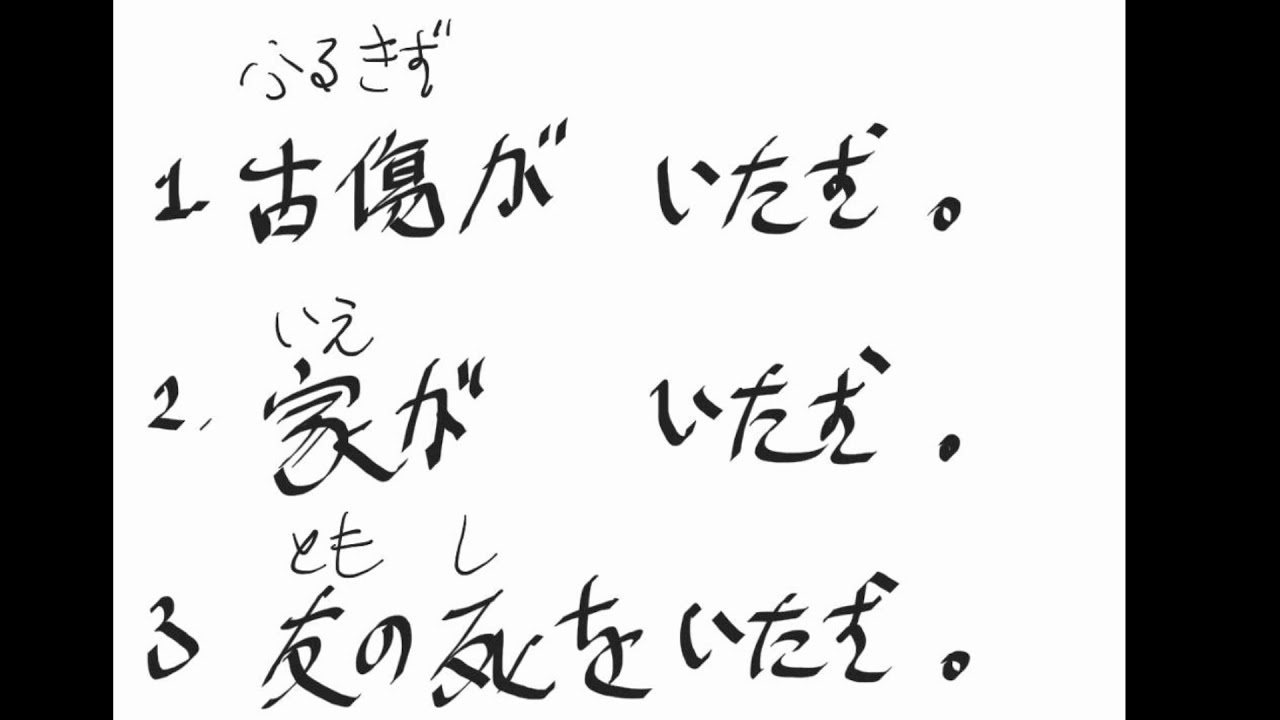 ふるきず
1. 古傷が いたむ。
いえ
2. 家が いたむ。
とも し
3 友の死をいたむ。